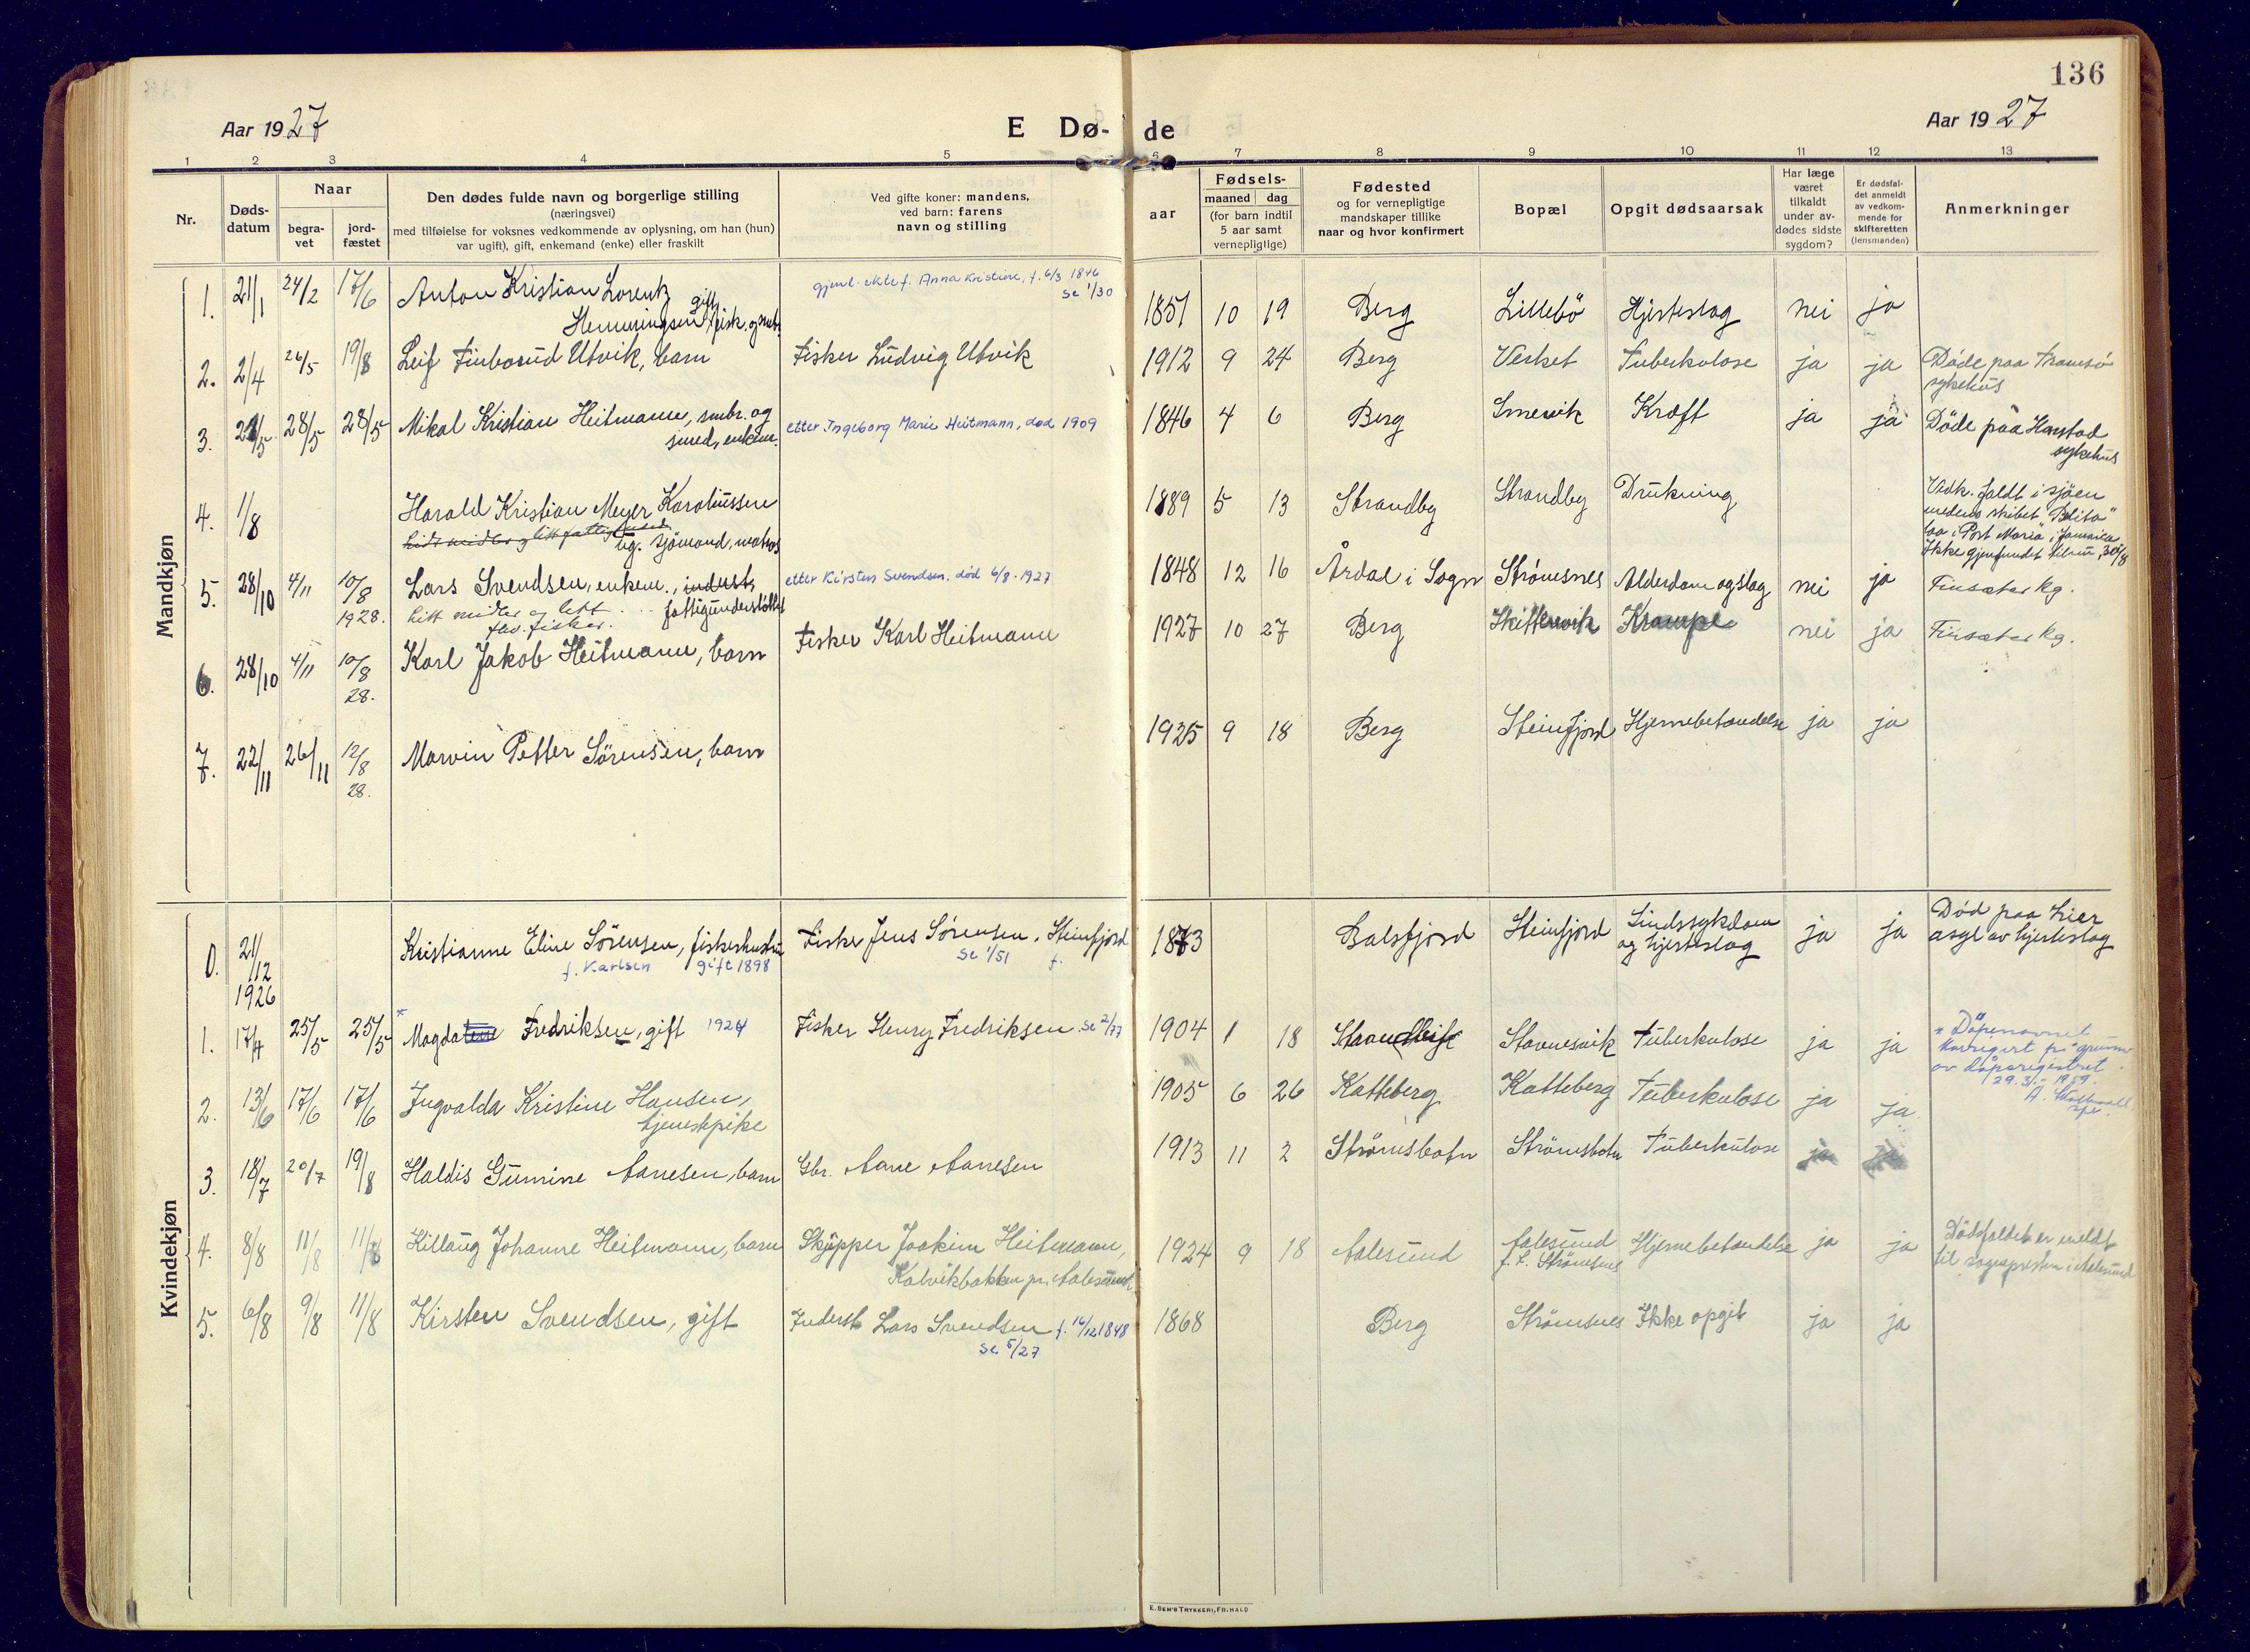 136
Aar 1927
E Dø-
de
Aar 1927
1 2 3 4 5 6 7 8 9 10 11 12 13
Nr.
Døds-
datum
Naar
begra-
vet
jord-
fæstet
Den dødes fulde navn og borgerlige stilling
(næringsvei)
med tilføielse for voksnes vedkommende av oplysning, om han (hun)
var ugift), gift, enkemand (enke) eller fraskilt
Ved gifte koner: mandens,
ved barn: farens
navn og stilling
aar
Fødsels-
maaned dag
(for barn indtil
5 aar samt
vernepligtige)
Fødested
og for vernepligtige
mandskaper tillike
naar og hvor konfirmert
Bopæl
Opgit dødsaarsak
Har læge
været
tilkaldt
under av-
dødes sidste
sygdom?
Er dødsfal-
det anmeldt
av vedkom-
mende for
skifteretten
(lensmanden)
Anmerkninger
Mandkjøn
1. 21/1 24/2 17/6 Anton Kristian Lorentz
Hemmingsen gift, fisk. og smbr.
gjenl. ektef. Anna Kristine, f. 6/3 1846
se 1/30
1851 10 19 Berg Lillebö Hjerteslag nei ja
2. 2/4 26/5 19/8 Leif Finborud Utvik, barn Fisker Ludvig Utvik 1912 9 24 Berg Vesket Tuberkulose ja ja Döde paa Tromsö
sykehus
3. 21/5 28/5 28/5 Mikal Kristian Heitmann, smbr. og
smed, enkem.
etter Ingeborg Marie Heitmann, død 1909
1846 4 6 Berg Smervik Kræft ja ja Döde paa Harstad
sykehus
4. 1/8 Harald Kristian Meyer Karoliussen
ug. sjömand, matros
1889 5 13 Strandby Strandby Drukning Vedk. faldt i sjöen
medens skibet "Belita"
laa i Port Maria, Jamaica
Ikke gjenfundet tilm. 30/8
5. 28/10 4/11 10/8
1928.
Lars Svendsen, enkem., inderst,
fattigunderstöttet
litt midler og lett
fhv. fisker.
etter Kirsten Svendsen. død 6/8 - 1927
1848 12 16 Årdal i Sogn Strömsnes Alderdom og slag nei ja Finsæter kg.
6. 28/10 4/11 10/8
28.
Karl Jakob Heitmann, barn Fisker Karl Heitmann 1927 10 27 Berg Skittenvik Krampe nei ja Finsæter kg.
7. 22/11 26/11 12/8
28.
Marvin Petter Sörensen, barn 1925 9 18 Berg Steinfjord Hjernebetændelse ja ja
Kvindekjøn
0. 21/12
1926
Kristianne Eline Sörensen, fiskerhustru
f. Karlsen gift 1898
Fisker Jens Sörensen, Steinfjord
se 1/51 f.
1873 Balsfjord Steinfjord Sindssykdom
og hjerteslag
ja ja Död paa Lier
asyl av hjerteslag
1. 17/4 25/5 25/5 * Magda Fredriksen, gift 1924 Fisker Henry Fredriksen. se 2/77 1904 1 18 Stavnesvik Tuberkulose ja ja
* Döpenavnet
korrigert på grunn
av dåpsregistret
29.3. - 1959.
A.
2. 13/6 17/6 17/6 Ingvalda Kristine Hansen,
tjenestepike
1905 6 26 Katteberg Katteberg Tuberkulose ja ja
3. 18/7 20/7 19/8 Haldis Gumine Aanesen, barn Gbr. Aane Aanesen 1913 11 2 Strömsbotn Strömsbotn Tuberkulose ja ja
4. 8/8 11/8 11/8 Killaug Johanne Heitmann, barn Skipper Joakim Heitmann,
Kalvikbakken pr. Aalesund.
1924 9 18 Aalesund Aalesund
f. t. Strömsnes
Hjernebetændelse ja ja Dödsfaldet er meldt
til sognepresten i Aalesund
5. 6/8 9/8 11/8 Kirsten Svendsen, gift Inderst Lars Svendsen f. 16/12 1848
se 5/27
1868 Berg Strömsnes Ikke opgit ja ja
E. SEM'S TRYKKERI, FR. HALD